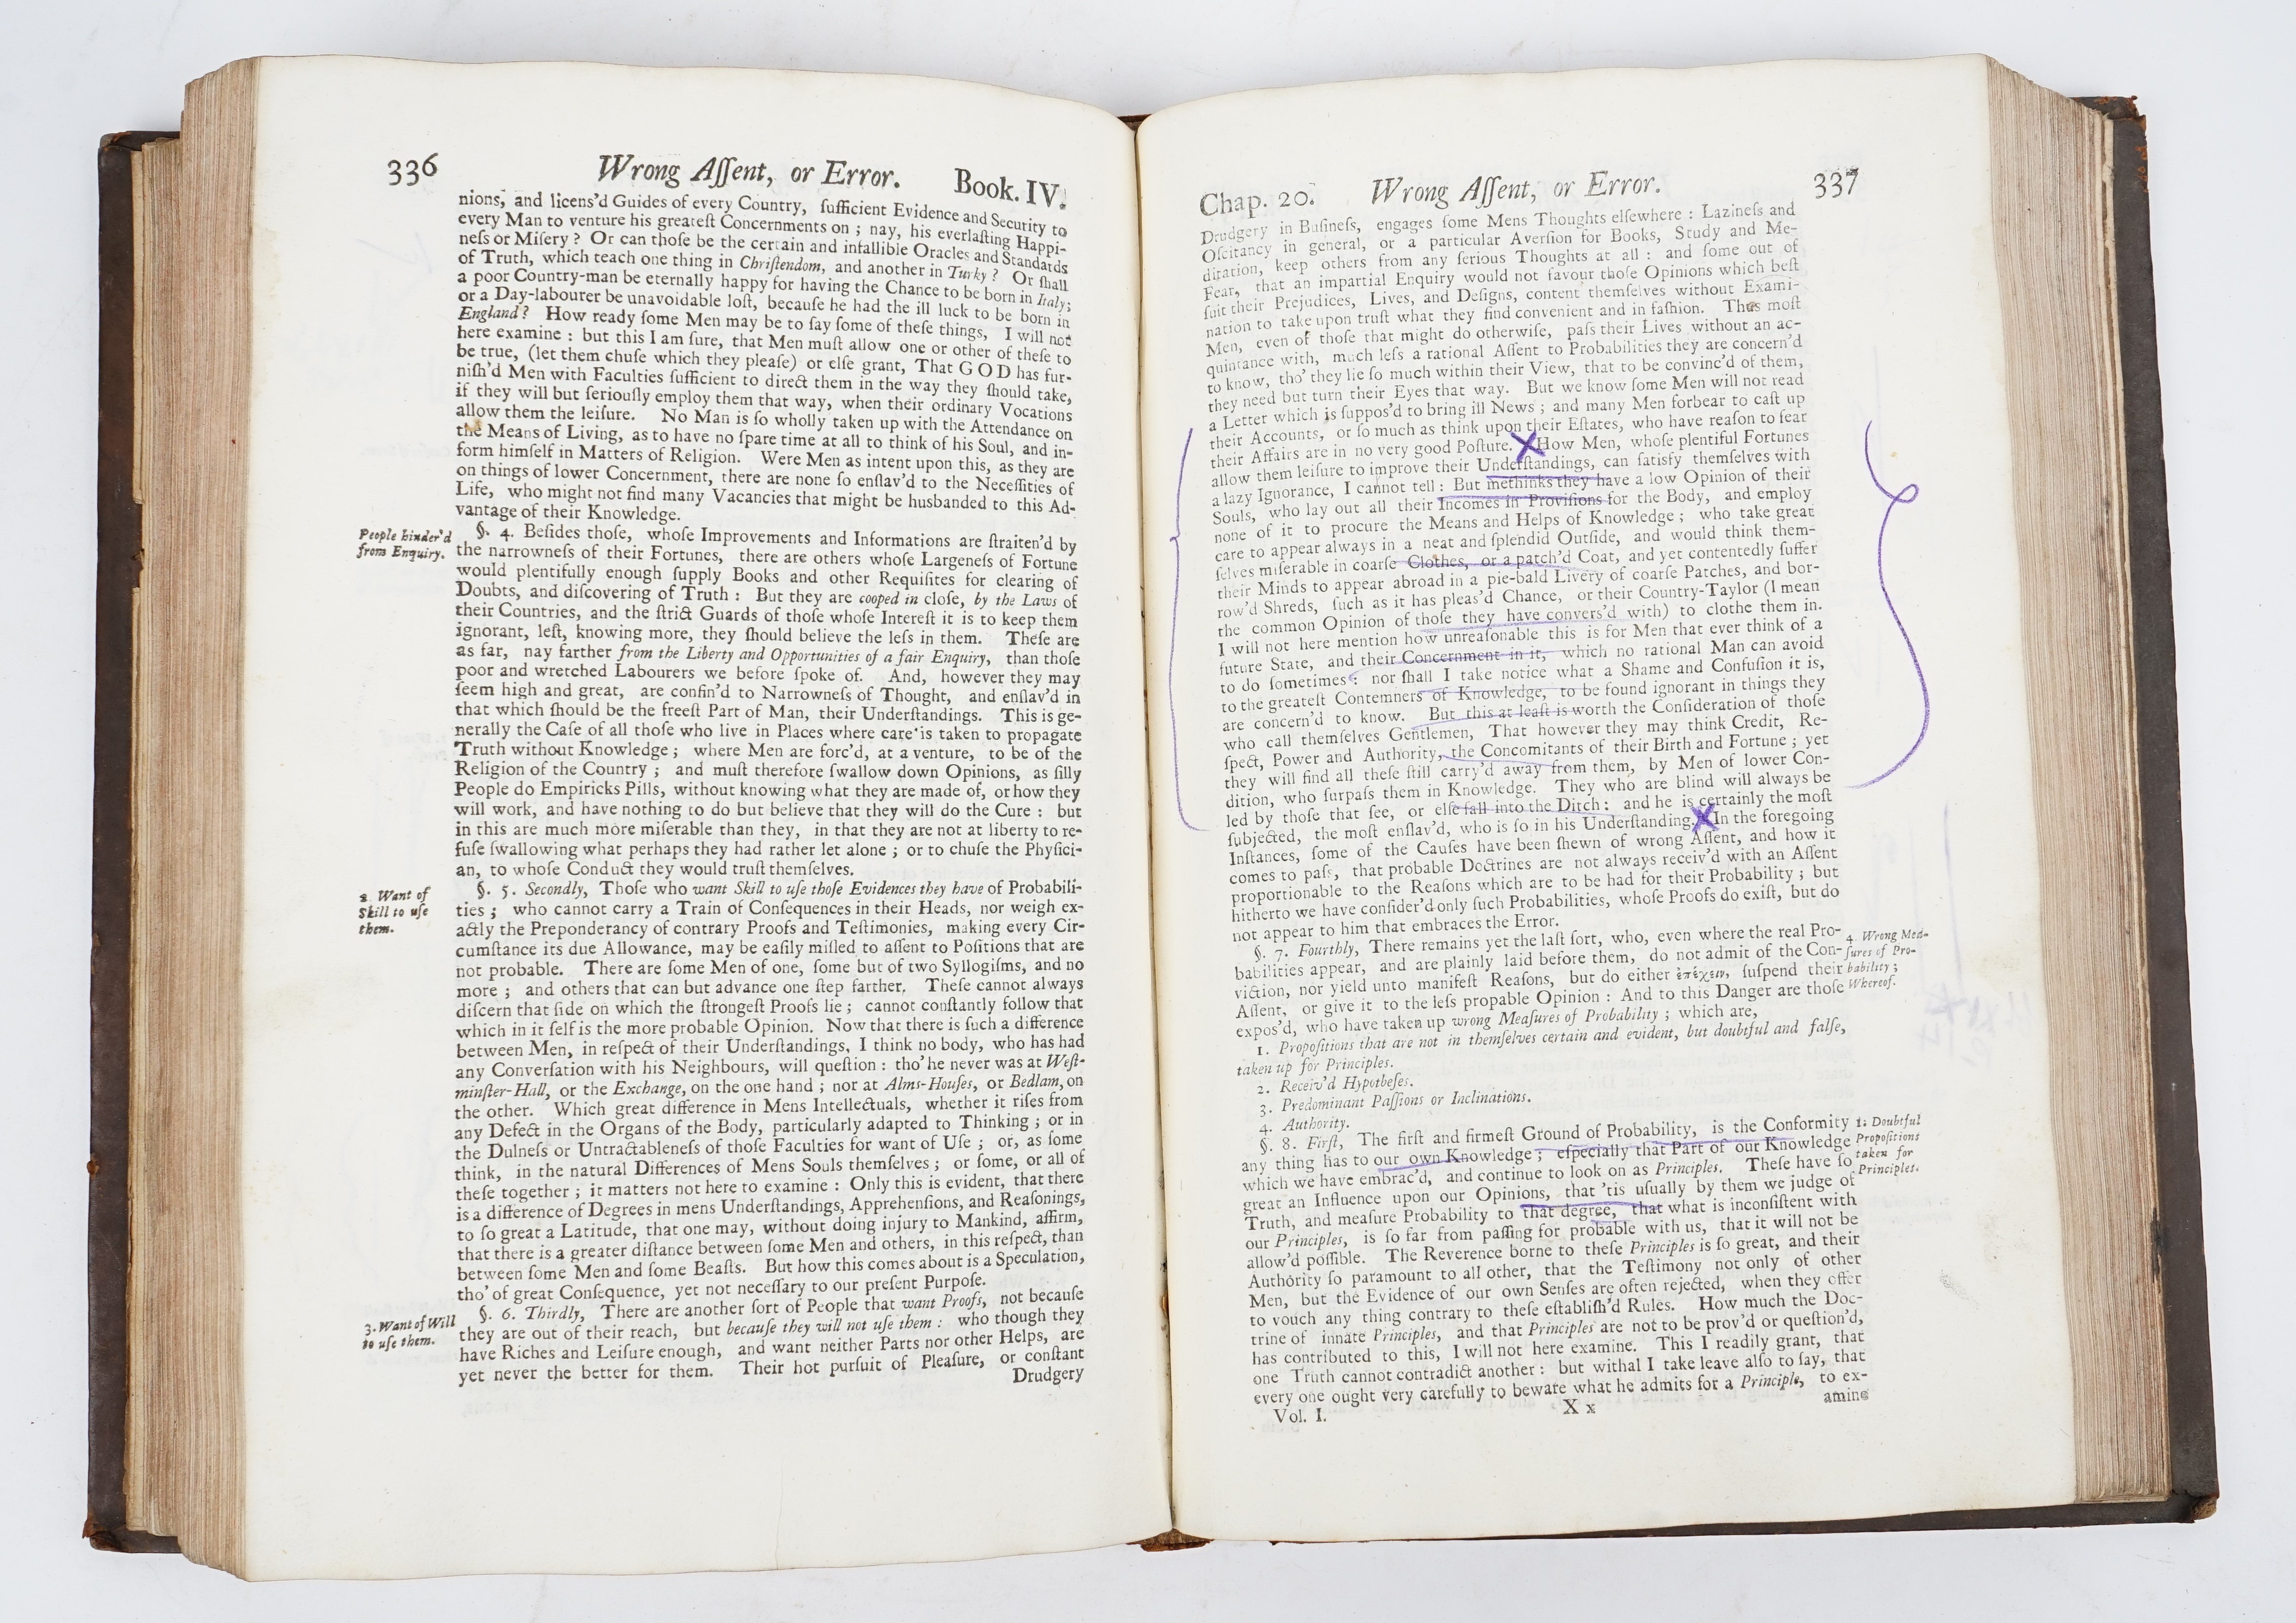 336 Wrong Aſſent, or Error. Book. IV.
nions, and licens'd Guides of every Country, ſufficient Evidence and Security to
every Man to venture his greateſt Concernments on ; nay, his everlaſting Happi-
neſs or Miſery ? Or can thoſe be the certain and infallible Oracles and Standards
of Truth, which teach one thing in Chriſtendom, and another in Turky ? Or ſhall
a poor Country-man be eternally happy for having the Chance to be born in Italy;
or a Day-labourer be unavoidable loſt, becauſe he had the ill luck to be born in
England ? How ready ſome Men may be to ſay ſome of theſe things, I will not
here examine : but this I am ſure, that Men muſt allow one or other of theſe to
be true, (let them chuſe which they pleaſe) or elſe grant, That GOD has fur-
niſh'd Men with Faculties ſufficient to direct them in the way they ſhould take,
if they will but ſeriouſly employ them that way, when their ordinary Vocations
allow them the leiſure. No Man is ſo wholly taken up with the Attendance on
the Means of Living, as to have no ſpare time at all to think of his Soul, and in-
form himſelf in Matters of Religion. Were Men as intent upon this, as they are
on things of lower Concernment, there are none ſo enſlav'd to the Neceſſities of
Life, who might not find many Vacancies that might be husbanded to this Ad-
vantage of their Knowledge.
People hinder'd
from Enquiry.
§. 4. Beſides thoſe, whoſe Improvements and Informations are ſtraiten'd by
the narrowneſs of their Fortunes, there are others whoſe Largeneſs of Fortune
would plentifully enough ſupply Books and other Requiſites for clearing of
Doubts, and diſcovering of Truth : But they are cooped in cloſe, by the Laws of
their Countries, and the ſtrict Guards of thoſe whoſe Intereſt it is to keep them
ignorant, leſt, knowing more, they ſhould believe the leſs in them. Theſe are
as far, nay farther from the Liberty and Opportunities of a fair Enquiry, than thoſe
poor and wretched Labourers we before ſpoke of. And, however they may
ſeem high and great, are confin'd to Narrowneſs of Thought, and enſlav'd in
that which ſhould be the freeſt Part of Man, their Underſtandings. This is ge-
nerally the Caſe of all thoſe who live in Places where care is taken to propagate
Truth without Knowledge ; where Men are forc'd, at a venture, to be of the
Religion of the Country ; and muſt therefore ſwallow down Opinions, as ſilly
People do Empiricks Pills, without knowing what they are made of, or how they
will work, and have nothing to do but believe that they will do the Cure : but
in this are much more miſerable than they, in that they are not at liberty to re-
fuſe ſwallowing what perhaps they had rather let alone ; or to chuſe the Phyſici-
an, to whoſe Conduct they would truſt themſelves.
2 Want of
Skill to uſe
them.
§. 5. Secondly, Thoſe who want Skill to uſe thoſe Evidences they have of Probabili-
ties ; who cannot carry a Train of Conſequences in their Heads, nor weigh ex-
actly the Preponderancy of contrary Proofs and Teſtimonies, making every Cir-
cumſtance its due Allowance, may be eaſily miſled to aſſent to Poſitions that are
not probable. There are ſome Men of one, ſome but of two Syllogiſms, and no
more ; and others that can but advance one ſtep farther. Theſe cannot always
diſcern that ſide on which the ſtrongeſt Proofs lie ; cannot conſtantly follow that
which in it ſelf is the more probable Opinion. Now that there is ſuch a difference
between Men, in reſpect of their Underſtandings, I think no body, who has had
any Converſation with his Neighbours, will queſtion : tho' he never was at Weſt-
minſter-Hall, or the Exchange, on the one hand ; nor at Alms-Houſes, or Bedlam, on
the other. Which great difference in Mens Intellectuals, whether it riſes from
any Defect in the Organs of the Body, particularly adapted to Thinking ; or in
the Dulneſs or Untractableneſs of thoſe Faculties for want of Uſe ; or, as ſome
think, in the natural Differences of Mens Souls themſelves ; or ſome, or all of
theſe together ; it matters not here to examine : Only this is evident, that there
is a difference of Degrees in mens Underſtandings, Apprehenſions, and Reaſonings,
to ſo great a Latitude, that one may, without doing injury to Mankind, affirm,
that there is a greater diſtance between ſome Men and others, in this reſpect, than
between ſome Men and ſome Beaſts. But how this comes about is a Speculation,
tho' of great Conſequence, yet not neceſſary to our preſent Purpoſe.
3. Want of Will
to uſe them.
§. 6. Thirdly, There are another ſort of People that want Proofs, not becauſe
they are out of their reach, but becauſe they will not uſe them : who though they
have Riches and Leiſure enough, and want neither Parts nor other Helps, are
yet never the better for them. Their hot purſuit of Pleaſure, or conſtant
Drudgery
Chap. 20. Wrong Aſſent, or Error. 337
Drudgery in Buſineſs, engages ſome Mens Thoughts elſewhere : Lazineſs and
Oſcitancy in general, or a particular Averſion for Books, Study and Me-
ditation, keep others from any ſerious Thoughts at all : and ſome out of
Fear, that an impartial Enquiry would not favour thoſe Opinions which beſt
ſuit their Prejudices, Lives, and Deſigns, content themſelves without Exami-
nation to take upon truſt what they find convenient and in faſhion. Thus moſt
Men, even of thoſe that might do otherwiſe, paſs their Lives without an ac-
quintance with, much leſs a rational Aſſent to Probabilities they are concern'd
to know, tho' they lie ſo much within their View, that to be convinc'd of them,
they need but turn their Eyes that way. But we know ſome Men will not read
a Letter which is ſuppos'd to bring ill News ; and many Men forbear to caſt up
their Accounts, or ſo much as think upon their Eſtates, who have reaſon to fear
their Affairs are in no very good Poſture. X How Men, whoſe plentiful Fortunes
allow them leiſure to improve their Underſtandings, can ſatisfy themſelves with
a lazy Ignorance, I cannot tell : But methinks they have a low Opinion of their
Souls, who lay out all their Incomes in Proviſions for the Body, and employ
none of it to procure the Means and Helps of Knowledge ; who take great
care to appear always in a neat and ſplendid Outſide, and would think them-
ſelves miſerable in coarſe Clothes, or a patch'd Coat, and yet contentedly ſuffer
their Minds to appear abroad in a pie-bald Livery of coarſe Patches, and bor-
row'd Shreds, ſuch as it has pleas'd Chance, or their Country-Taylor (I mean
the common Opinion of thoſe they have convers'd with) to clothe them in.
I will not here mention how unreaſonable this is for Men that ever think of a
future State, and their Concernment in it, which no rational Man can avoid
to do ſometimes : nor ſhall I take notice what a Shame and Confuſion it is,
to the greateſt Contemners of Knowledge, to be found ignorant in things they
are concern'd to know. But this at leaſt is worth the Conſideration of thoſe
who call themſelves Gentlemen, That however they may think Credit, Re-
ſpect, Power and Authority, the Concomitants of their Birth and Fortune ; yet
they will find all theſe ſtill carry'd away from them, by Men of lower Con-
dition, who ſurpaſs them in Knowledge. They who are blind will always be
led by thoſe that ſee, or elſe fall into the Ditch : and he is certainly the moſt
ſubjected, the moſt enſlav'd, who is ſo in his Underſtanding. X In the foregoing
Inſtances, ſome of the Cauſes have been ſhewn of wrong Aſſent, and how it
comes to paſs, that probable Doctrines are not always receiv'd with an Aſſent
proportionable to the Reaſons which are to be had for their Probability ; but
hitherto we have conſider'd only ſuch Probabilities, whoſe Proofs do exiſt, but do
not appear to him that embraces the Error.
§. 7. Fourthly, There remains yet the laſt ſort, who, even where the real Pro-
babilities appear, and are plainly laid before them, do not admit of the Con-
viction, nor yield unto manifeſt Reaſons, but do either ἐπέχειν, ſuſpend their
Aſſent, or give it to the leſs propable Opinion : And to this Danger are thoſe
expos'd, who have taken up wrong Meaſures of Probability ; which are,
4. Wrong Mea-
ſures of Pro-
bability ;
Whereof.
1. Propoſitions that are not in themſelves certain and evident, but doubtful and falſe,
taken up for Principles.
2. Receiv'd Hypotheſes.
3. Predominant Paſſions or Inclinations.
4. Authority.
§. 8. Firſt, The firſt and firmeſt Ground of Probability, is the Conformity
any thing has to our own Knowledge ; eſpecially that Part of our Knowledge
which we have embrac'd, and continue to look on as Principles. Theſe have ſo
great an Influence upon our Opinions, that 'tis uſually by them we judge of
Truth, and meaſure Probability to that degree, that what is inconſiſtent with
our Principles, is ſo far from paſſing for probable with us, that it will not be
allow'd poſſible. The Reverence borne to theſe Principles is ſo great, and their
Authority ſo paramount to all other, that the Teſtimony not only of other
Men, but the Evidence of our own Senſes are often rejected, when they offer
to vouch any thing contrary to theſe eſtabliſh'd Rules. How much the Doc-
trine of innate Principles, and that Principles are not to be prov'd or queſtion'd,
has contributed to this, I will not here examine. This I readily grant, that
one Truth cannot contradict another : but withal I take leave alſo to ſay, that
every one ought very carefully to beware what he admits for a Principle, to ex-
1. Doubtful
Propoſitions
taken for
Principles.
Vol. I. X x amine